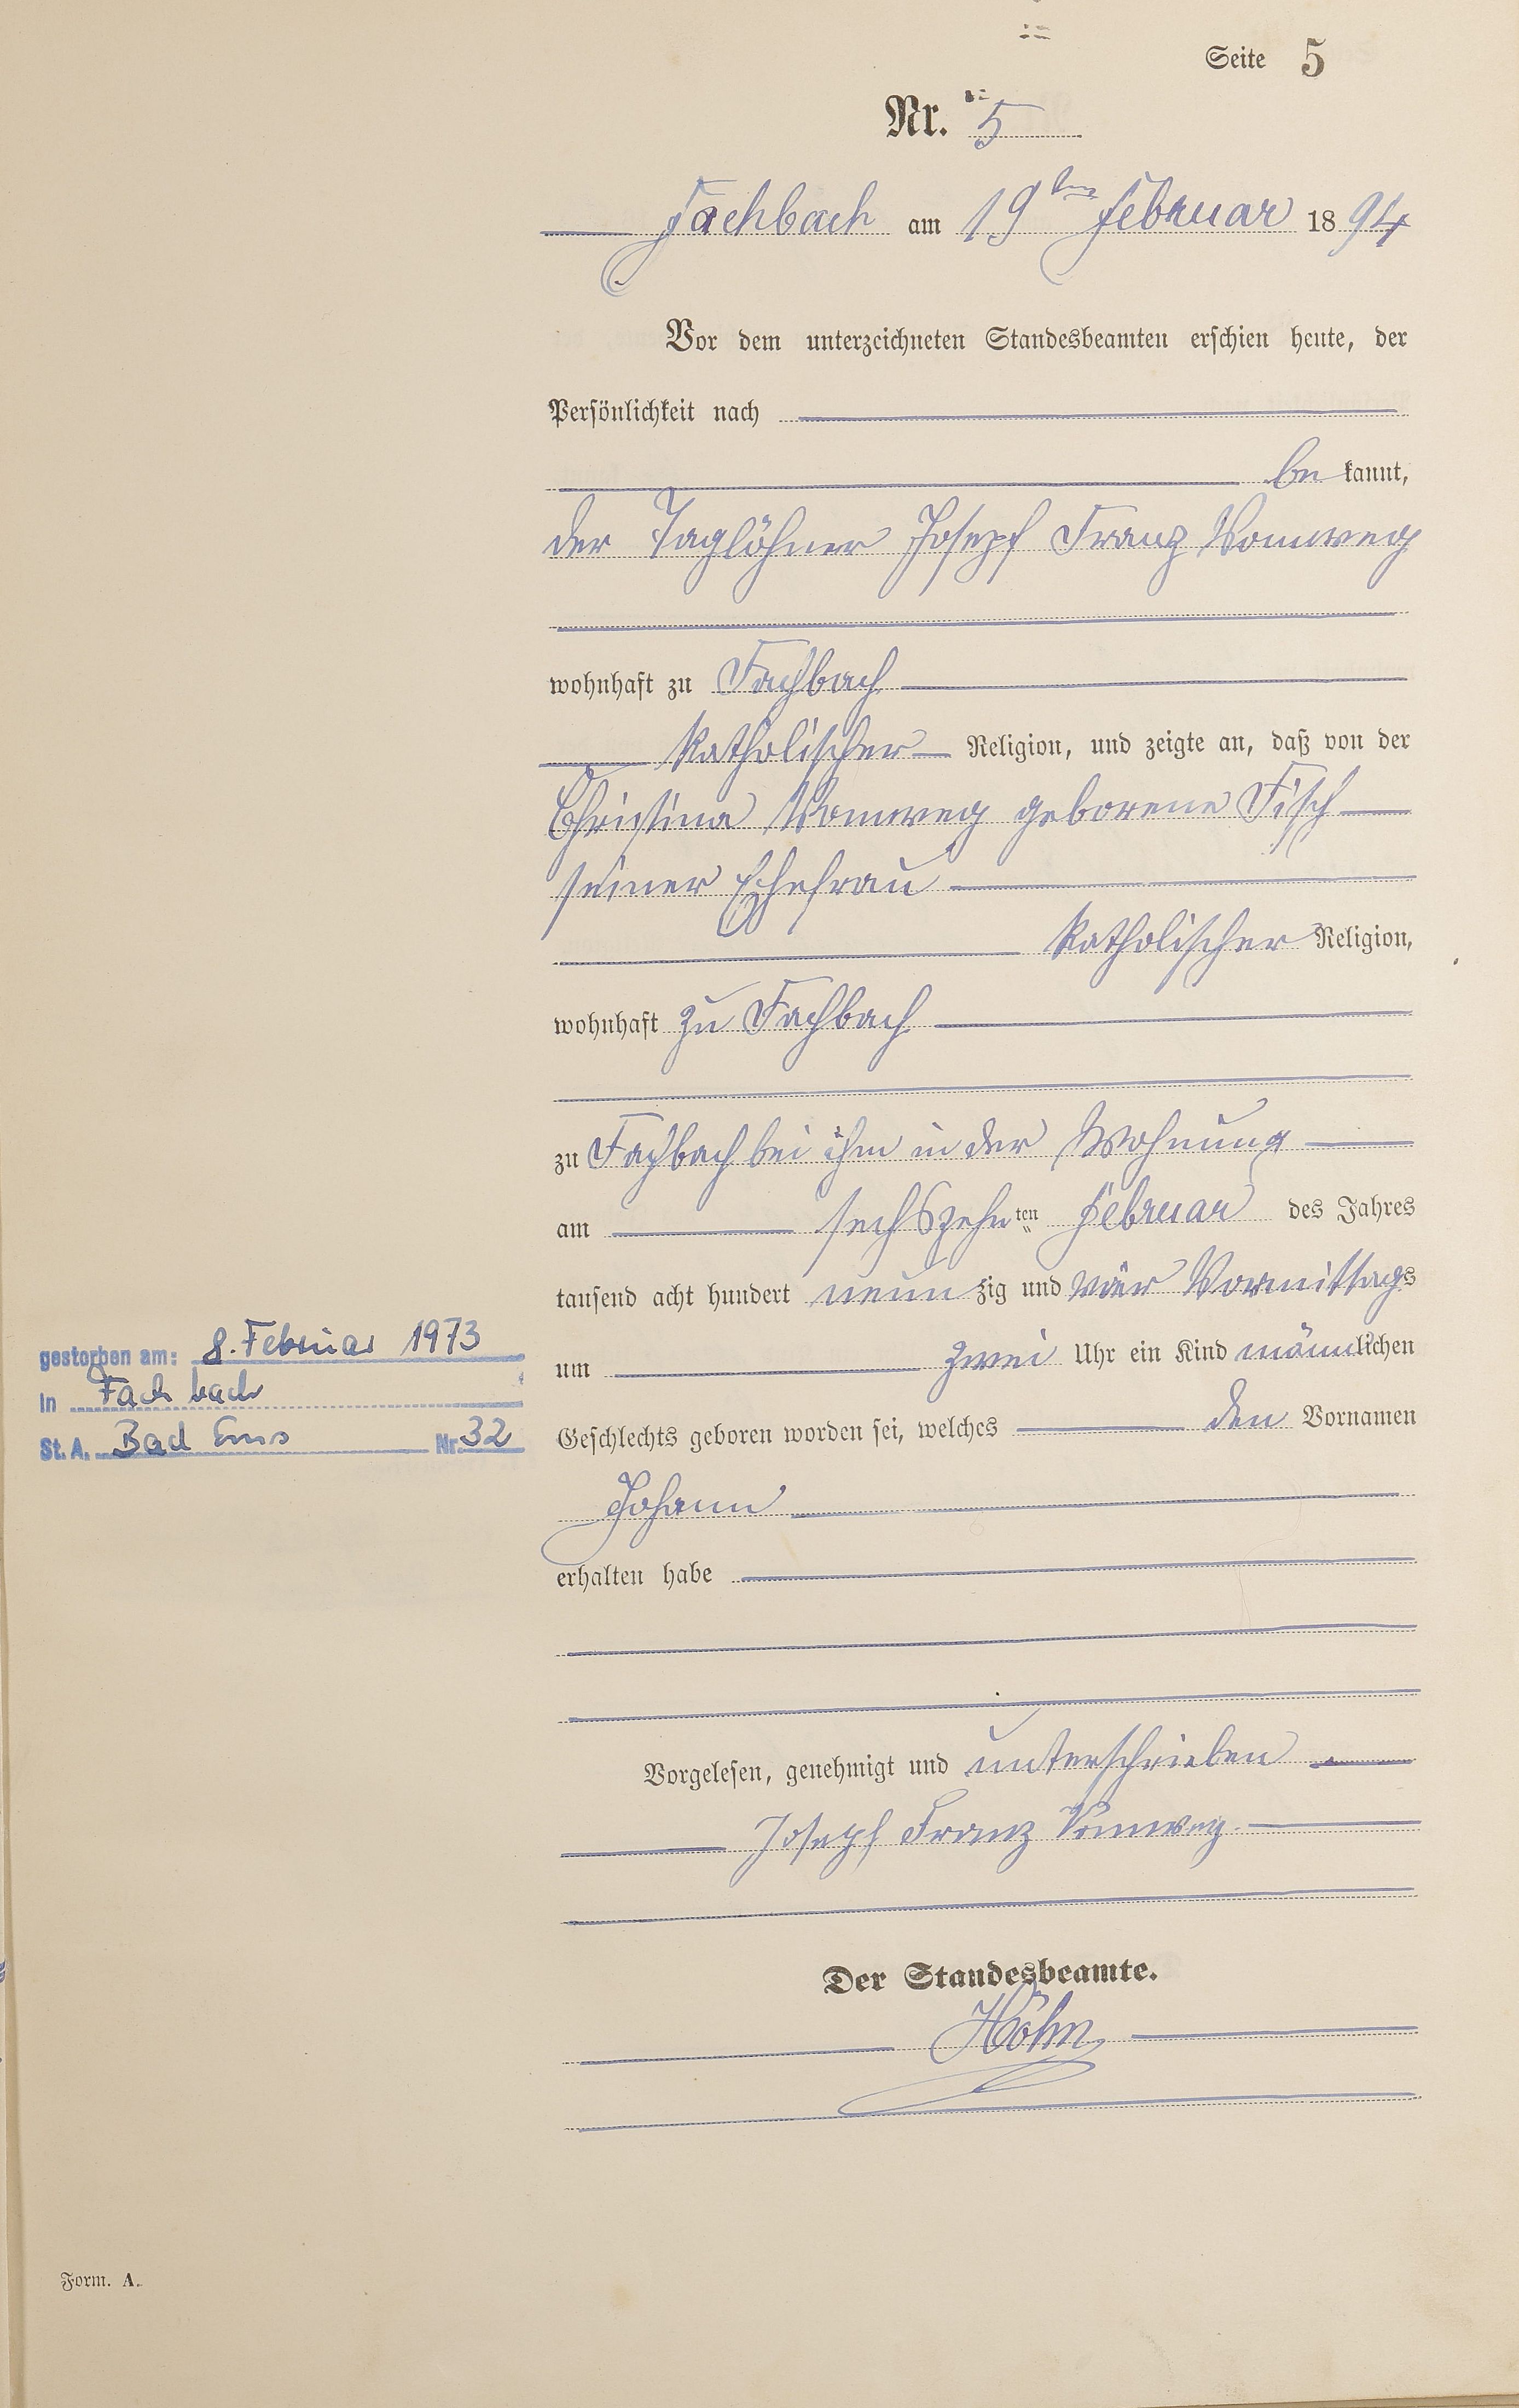 Seite 5
Nr. 5
Fachbach am 19ten Februar 1894
Vor dem unterzeichneten Standesbeamten erschien heute, der
Persönlichkeit nach
be kannt,
der Taglöhner Joseph Franz Vomweg
wohnhaft zu Fachbach
katholischer Religion, und zeigte an, daß von der
Christina Vomweg geborene Fisch
seiner Ehefrau
katholischer Religion,
wohnhaft zu Fachbach
zu Fachbach bei ihm in der Wohnung
am sechszehnten Februar des Jahres
tausend acht hundert neunzig und vier Vormittags
um zwei Uhr ein Kind männlichen
Geschlechts geboren worden sei, welches den Vornamen
Johann
erhalten habe
Vorgelesen, genehmigt und unterschrieben
Joseph Franz Vomweg.
Der Standesbeamte.
Höhn
gestorben am: 8. Februar 1973
in Fachbach
St. A. Bad Ems Nr. 32
Form. A.